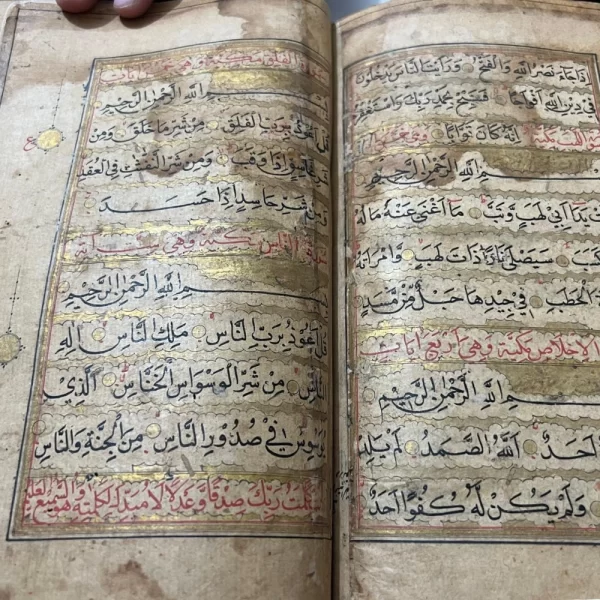 إذا جاء نصر الله والفتح ورأيت الناس يدخلون
في دين الله أفواجا فسبح بحمد ربك واستغفره
إنه كان توابا
بسم الله الرحمن الرحيم
تبت يدا أبي لهب وتب ما أغنى عنه ماله
كسب سيصلى نارا ذات لهب وامرأته
الحطب في جيدها حبل من مسد
الإخلاص مكية وهي أربع آيات
بسم الله الرحمن الرحيم
أحد الله الصمد لم يلد
ولم يكن له كفوا أحد
سورة الفلق مكية وهي خمس آيات
بسم الله الرحمن الرحيم
قل أعوذ برب الفلق من شر ما خلق ومن
شر غاسق إذا وقب ومن شر النفاثات في العقد
ومن شر حاسد إذا حسد
سورة الناس مكية وهي ست آية
بسم الله الرحمن الرحيم
قل أعوذ برب الناس ملك الناس إله
الناس من شر الوسواس الخناس الذي
يوسوس في صدور الناس من الجنة والناس
وتمت كلمت ربك صدقا وعدلا لا مبدل لكلماته وهو السميع العليم